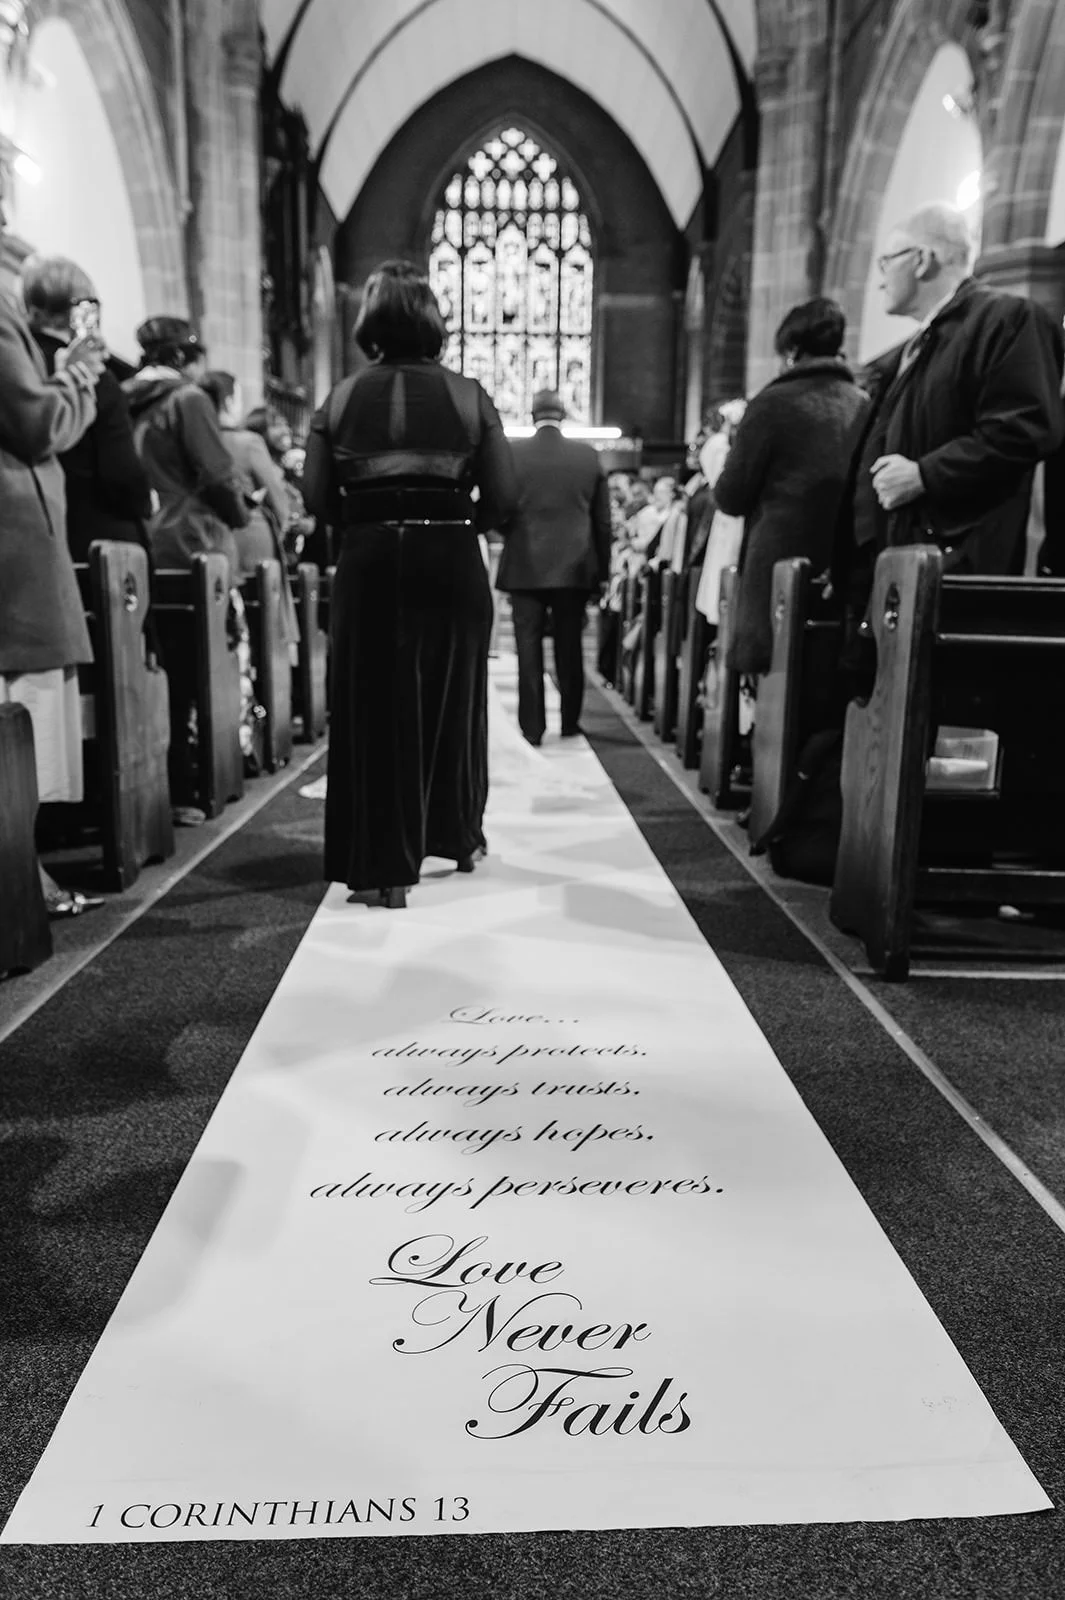 Love...
always protects.
always trusts.
always hopes.
always perseveres.
Love
Never
Fails
1 CORINTHIANS 13